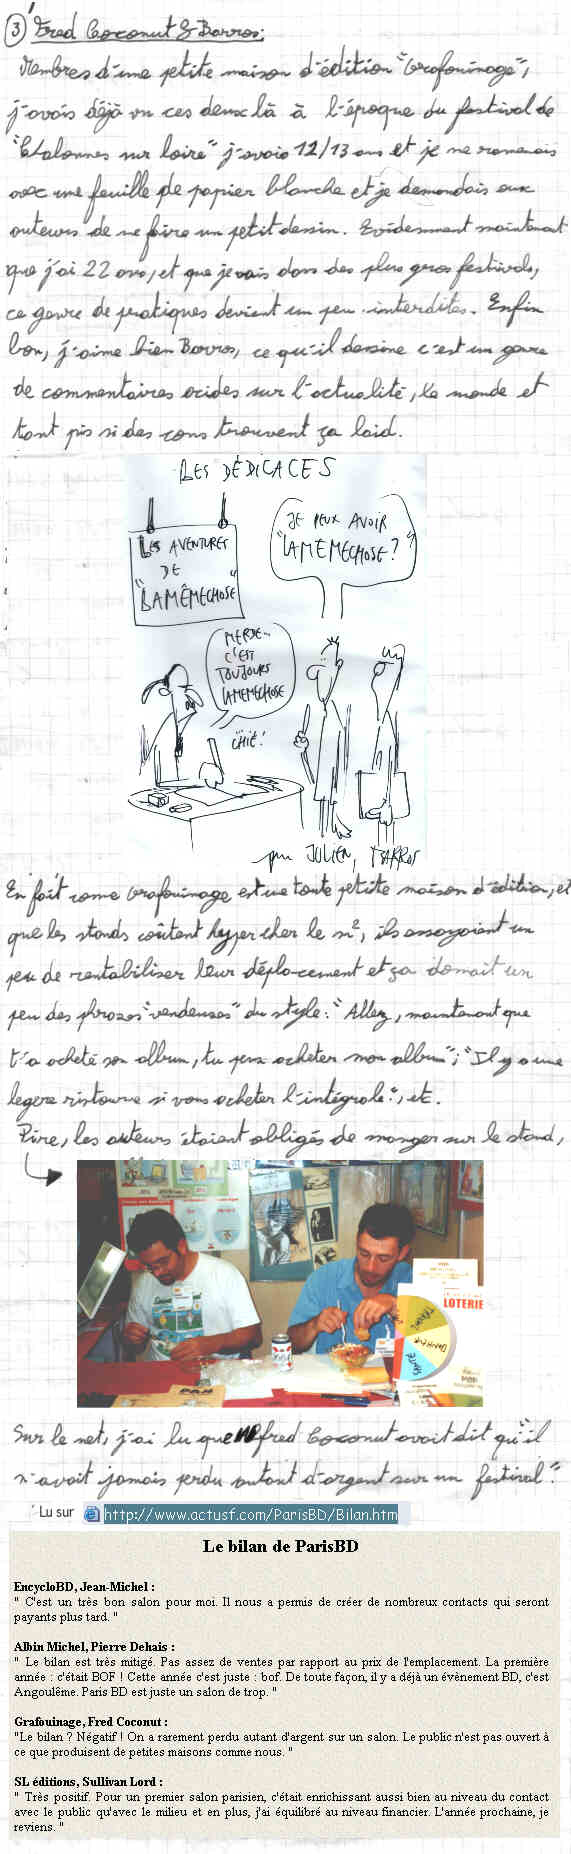 3 Fred Coconut & Barros:
Membres d'une petite maison d'édition "Grafouinage",
j'avais déjà vu ces deux là à l'époque du festival de
"Chalonnes sur loire" j'avais 12/13 ans et je me ramenais
avec une feuille de papier blanche et je demandais aux
auteurs de me faire un petit dessin. Evidemment maintenant
que j'ai 22 ans, et que je vais dans des plus gros festivals,
ce genre de pratiques devient un peu interdites. Enfin
bon, j'aime bien Barros, ce qu'il dessine c'est un genre
de commentaires acides sur l'actualité, le monde et
tant pis si des cons trouvent ça laid.
LES DÉDICACES
LES AVENTURES
DE
"LAMÊMECHOSE"
JE PEUX AVOIR
"LAMEMECHOSE?"
MERDE...
C'EST
TOUJOURS
LAMEMECHOSE
CHIÉ!
par JULIEN, BARROS
En fait come Grafouinage est une toute petite maison d'édition, et
que les stands coûtent hyper cher le m², ils essayaient un
peu de rentabiliser leur déplacement et ça donnait un
peu des phrases "vendeuses" du style: "Allez, maintenant que
t'a acheté son album, tu peux acheter mon album"; "Il y a une
legere ristourne si vous acheter l'intégrale", etc.
Pire, les auteurs étaient obligés de manger sur le stand,
LOTERIE
Sur le net, j'ai lu que fred Coconut avait dit qu'"il
n'avait jamais perdu autant d'argent sur un festival".
Lu sur http://www.actusf.com/ParisBD/Bilan.htm
Le bilan de ParisBD
EncycloBD, Jean-Michel :
" C'est un très bon salon pour moi. Il nous a permis de créer de nombreux contacts qui seront
payants plus tard. "
Albin Michel, Pierre Dehais :
" Le bilan est très mitigé. Pas assez de ventes par rapport au prix de l'emplacement. La première
année : c'était BOF ! Cette année c'est juste : bof. De toute façon, il y a déjà un évènement BD, c'est
Angoulême. Paris BD est juste un salon de trop. "
Grafouinage, Fred Coconut :
"Le bilan ? Négatif ! On a rarement perdu autant d'argent sur un salon. Le public n'est pas ouvert à
ce que produisent de petites maisons comme nous. "
SL éditions, Sullivan Lord :
" Très positif. Pour un premier salon parisien, c'était enrichissant aussi bien au niveau du contact
avec le public qu'avec le milieu et en plus, j'ai équilibré au niveau financier. L'année prochaine, je
reviens. "